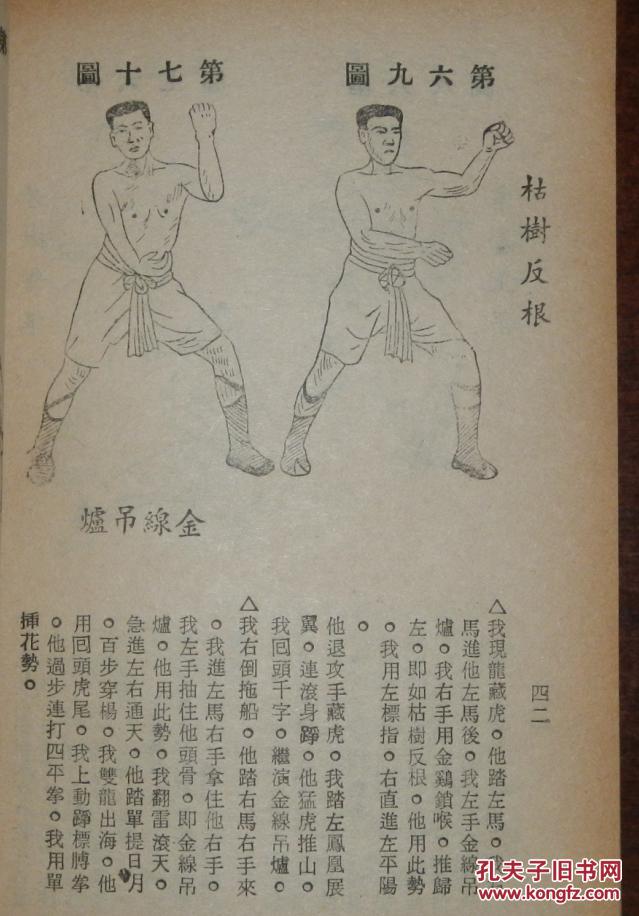 第六九圖
枯樹反根
第七十圖
金線吊爐
四二
△我現龍藏虎。他踏左馬。我
馬進他左馬後。我左手金線吊
爐。我右手用金鷄鎖喉。推歸
左。即如枯樹反根。他用此勢
。我用左標指。右直進左平陽
。
他退攻手藏虎。我踏左鳳凰展
翼。連滾身踭。他猛虎推山。
我囘頭千字。繼演金線吊爐。
△我右倒拖船。他踏右馬右手來
。我進左馬右手拿住他右手。
我左手抽住他頭骨。即金線吊
爐。他用此勢。我翻雷滾天。
急進左右通天。他踏單提日月
。百步穿楊。我雙龍出海。他
用囘頭虎尾。我上動踭標膊拳
。他過步連打四平拳。我用單
揷花勢。
孔夫子旧书网
kongfz.com